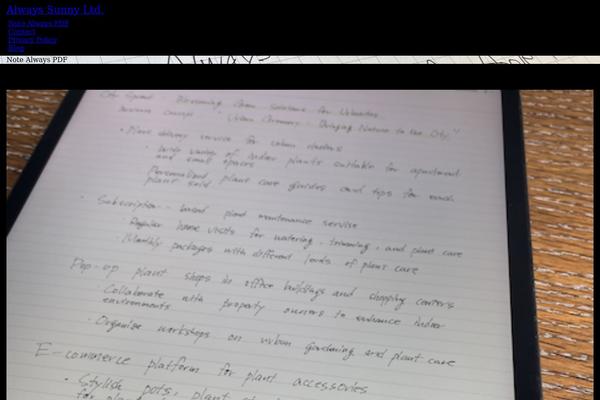 Always Sunny Ltd.
Note Always PDF
Contact
Privacy Policy
Blog
Note Always PDF
City Sprout - Blossoming Green Solutions for Urbanites
Business concept: "Urban Greenery - Bringing Nature to the City"
• Plant delivery service for urban dwellers
• Wide variety of indoor plants suitable for apartment
and small spaces
Personalized plant care guides and tips for each
plant sold
Subscription-based plant maintenance service
Regular home visits for watering, trimming, and plant care
Monthly packages with different levels of plant care
Pop-up plant shops in office buildings and shopping centers
Collaborate with property owners to enhance indoor
environments
Organise workshops on urban gardening and plant care
E-commerce platform for plant accessories
• Stylish pots, plant
for